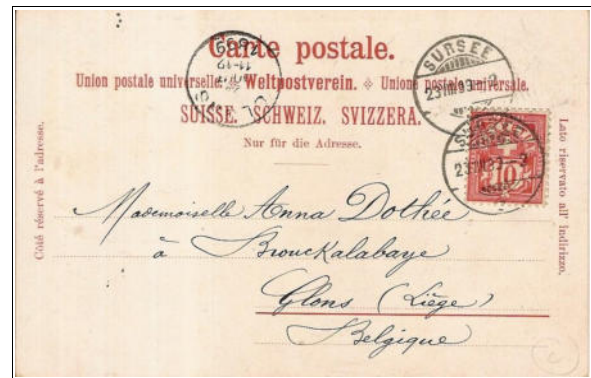 Carte postale.
Union postale universelle. Weltpostverein. Unione postale universale.
SUISSE. SCHWEIZ. SVIZZERA.
Nur für die Adresse.
Côté réservé à l'adresse.
Lato riservato all' indirizzo.
SURSEE
23 VIII 99
SURSEE
23 VIII 99
10
Mademoiselle Anna Dothée
à Brouckalabaye
Glons (Liège)
Belgique